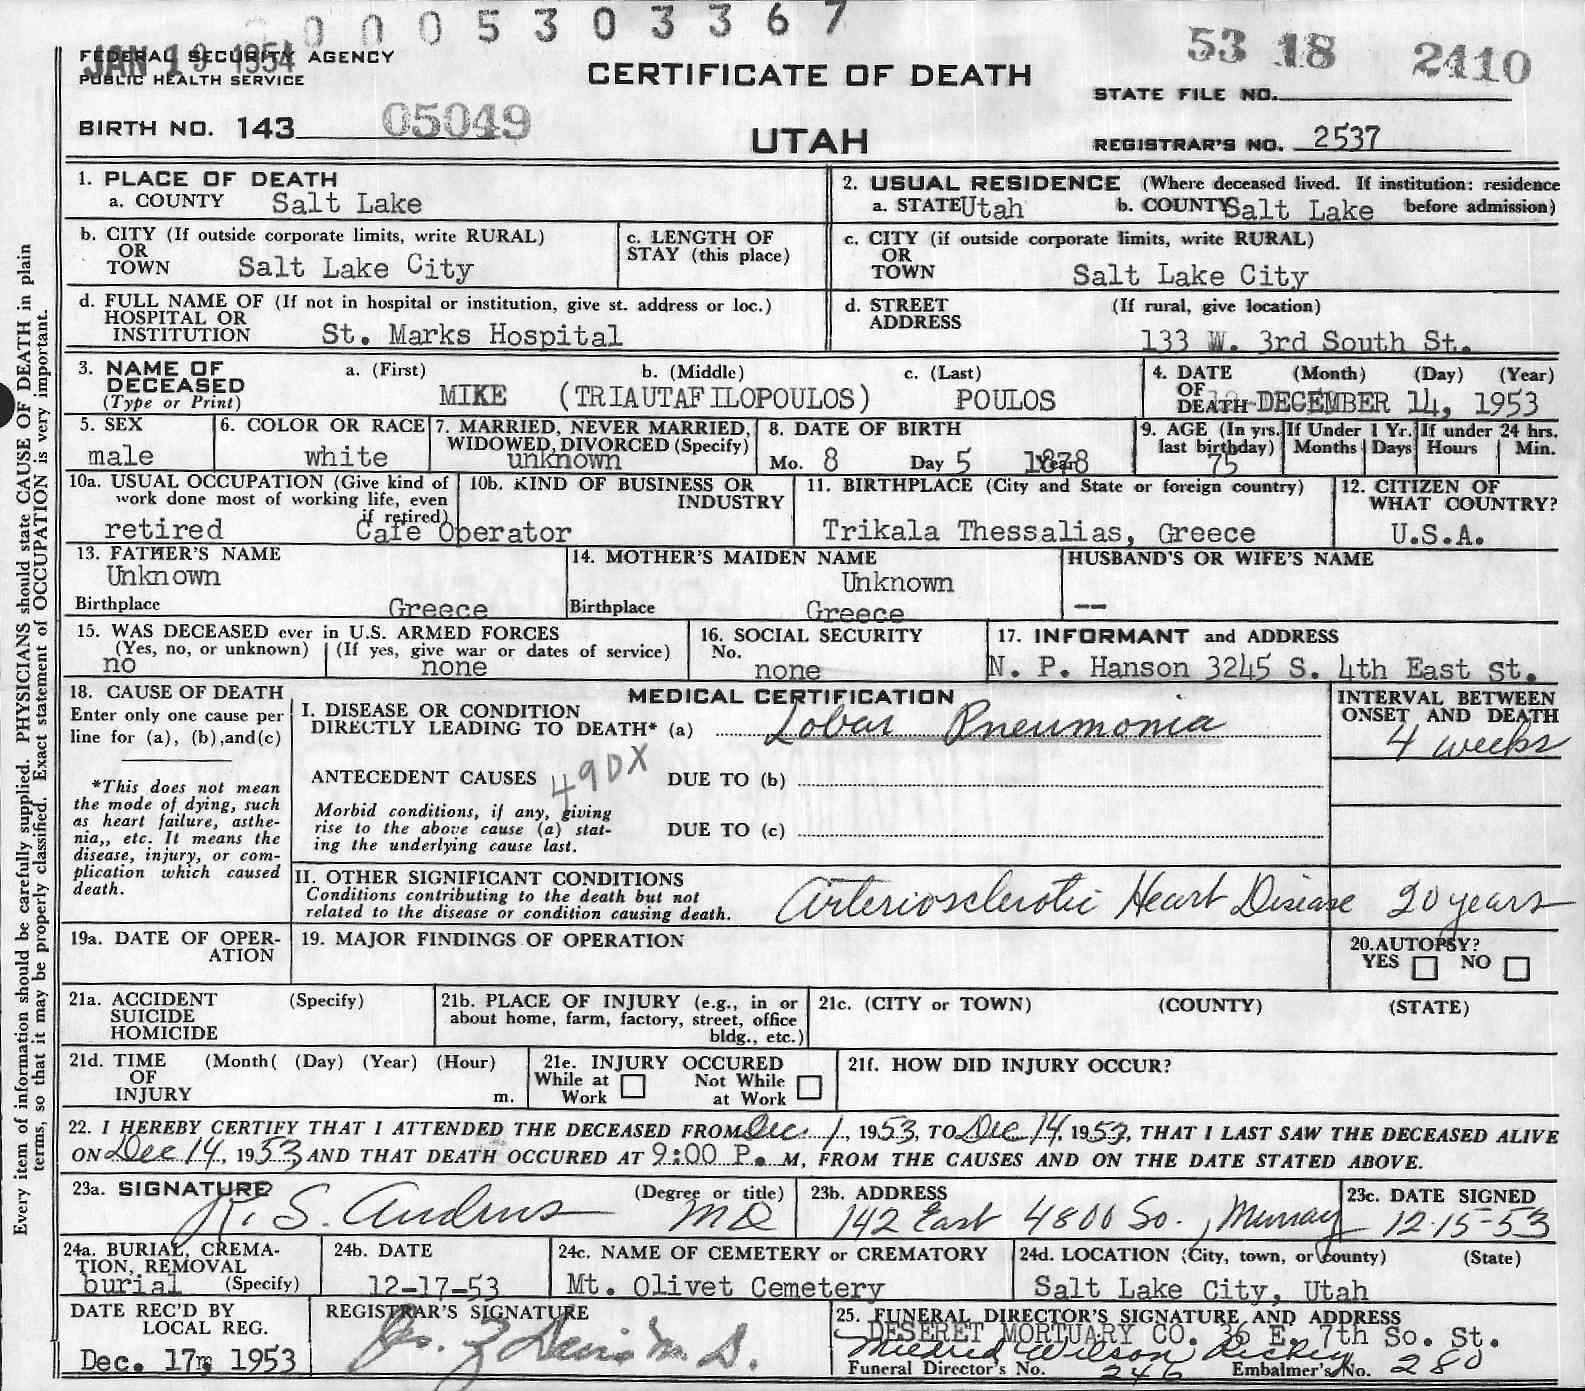 0005303367
JAN 19 1954
FEDERAL SECURITY AGENCY
PUBLIC HEALTH SERVICE
CERTIFICATE OF DEATH
UTAH
53 18 2110
STATE FILE NO.
BIRTH NO. 143 05049
REGISTRAR'S NO. 2537
Every item of information should be carefully supplied. PHYSICIANS should state CAUSE OF DEATH in plain
terms, so that it may be properly classified. Exact statement of OCCUPATION is very important.
1. PLACE OF DEATH
a. COUNTY Salt Lake
2. USUAL RESIDENCE (Where deceased lived. If institution: residence
a. STATE Utah b. COUNTY Salt Lake before admission)
b. CITY (If outside corporate limits, write RURAL)
OR
TOWN Salt Lake City
c. LENGTH OF
STAY (this place)
c. CITY (if outside corporate limits, write RURAL)
OR
TOWN Salt Lake City
d. FULL NAME OF (If not in hospital or institution, give st. address or loc.)
HOSPITAL OR
INSTITUTION St. Marks Hospital
d. STREET (If rural, give location)
ADDRESS
133 W. 3rd South St.
3. NAME OF a. (First) b. (Middle) c. (Last)
DECEASED
(Type or Print) MIKE (TRIAUTAFILOPOULOS) POULOS
4. DATE (Month) (Day) (Year)
OF
DEATH DECEMBER 14, 1953
5. SEX
male
6. COLOR OR RACE
white
7. MARRIED, NEVER MARRIED,
WIDOWED, DIVORCED (Specify)
unknown
8. DATE OF BIRTH
Mo. 8 Day 5 Year 1878
9. AGE (In yrs.
last birthday)
75
If Under 1 Yr.
Months Days
If under 24 hrs.
Hours Min.
10a. USUAL OCCUPATION (Give kind of
work done most of working life, even
if retired)
retired Cafe Operator
10b. KIND OF BUSINESS OR
INDUSTRY
11. BIRTHPLACE (City and State or foreign country)
Trikala Thessalias, Greece
12. CITIZEN OF
WHAT COUNTRY?
U.S.A.
13. FATHER'S NAME
Unknown
Birthplace Greece
14. MOTHER'S MAIDEN NAME
Unknown
Birthplace Greece
HUSBAND'S OR WIFE'S NAME
--
15. WAS DECEASED ever in U.S. ARMED FORCES
(Yes, no, or unknown) (If yes, give war or dates of service)
no none
16. SOCIAL SECURITY
No.
none
17. INFORMANT and ADDRESS
N. P. Hanson 3245 S. 4th East St.
18. CAUSE OF DEATH
Enter only one cause per
line for (a), (b),and(c)
*This does not mean
the mode of dying, such
as heart failure, asthe-
nia,, etc. It means the
disease, injury, or com-
plication which caused
death.
MEDICAL CERTIFICATION
I. DISEASE OR CONDITION
DIRECTLY LEADING TO DEATH* (a) Lobar Pneumonia
INTERVAL BETWEEN
ONSET AND DEATH
4 weeks
ANTECEDENT CAUSES 490X DUE TO (b)
Morbid conditions, if any, giving
rise to the above cause (a) stat-
ing the underlying cause last.
DUE TO (c)
II. OTHER SIGNIFICANT CONDITIONS
Conditions contributing to the death but not
related to the disease or condition causing death.
Arteriosclerotic Heart Disease 20 years
19a. DATE OF OPER-
ATION
19. MAJOR FINDINGS OF OPERATION
20. AUTOPSY?
YES NO
21a. ACCIDENT (Specify)
SUICIDE
HOMICIDE
21b. PLACE OF INJURY (e.g., in or
about home, farm, factory, street, office
bldg., etc.)
21c. (CITY or TOWN) (COUNTY) (STATE)
21d. TIME (Month( (Day) (Year) (Hour)
OF
INJURY m.
21e. INJURY OCCURED
While at Not While
Work at Work
21f. HOW DID INJURY OCCUR?
22. I HEREBY CERTIFY THAT I ATTENDED THE DECEASED FROM Dec. 1, 1953, TO Dec 14, 1953, THAT I LAST SAW THE DECEASED ALIVE
ON Dec 14, 1953 AND THAT DEATH OCCURED AT 9:00 P. M, FROM THE CAUSES AND ON THE DATE STATED ABOVE.
23a. SIGNATURE (Degree or title)
K. S. Andrus MD
23b. ADDRESS
142 East 4800 So., Murray
23c. DATE SIGNED
12-15-53
24a. BURIAL, CREMA-
TION, REMOVAL
burial (Specify)
24b. DATE
12-17-53
24c. NAME OF CEMETERY or CREMATORY
Mt. Olivet Cemetery
24d. LOCATION (City, town, or county) (State)
Salt Lake City, Utah
DATE REC'D BY
LOCAL REG.
Dec. 17, 1953
REGISTRAR'S SIGNATURE
M. D.
25. FUNERAL DIRECTOR'S SIGNATURE AND ADDRESS
DESERET MORTUARY CO. 36 E. 7th So. St.
Mildred Wilson Rickey
Funeral Director's No. 246 Embalmer's No. 280